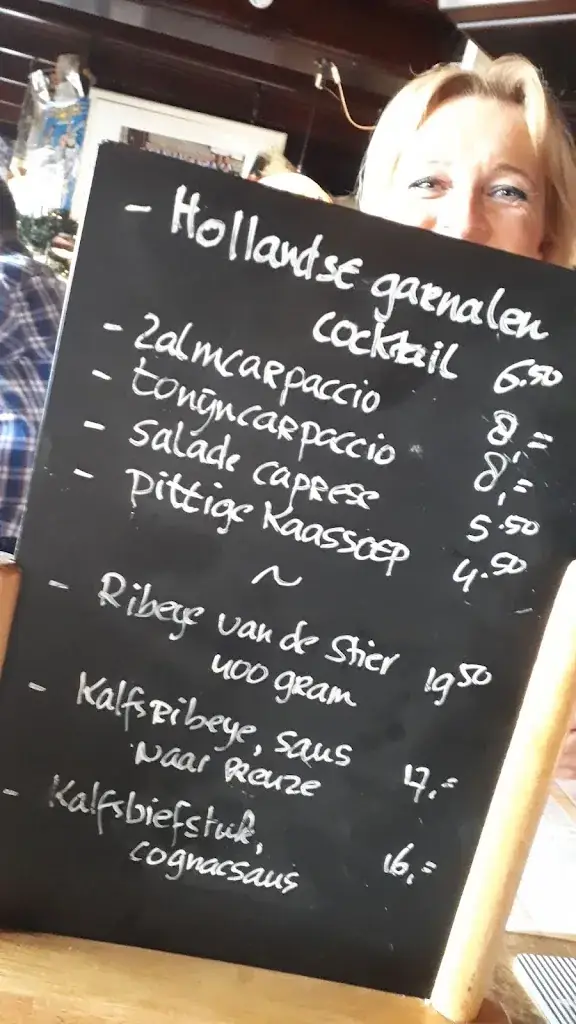 - Hollandse garnalen
cocktail 6.50
- Zalmcarpaccio 8,=
- tonijncarpaccio 8,=
- Salade caprese 5.50
- Pittige Kaassoep 4.50
~
- Ribeye van de Stier
400 gram 19 50
- KalfsRibeye, saus
Naar Keuze 17,=
- Kalfsbiefstuk,
cognacsaus 16,=